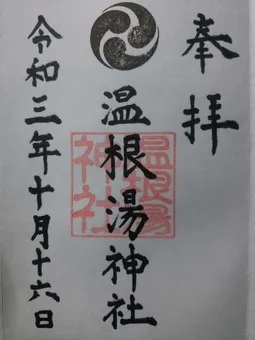 奉拝
温根湯神社
温根湯
神社
令和三年十月十六日